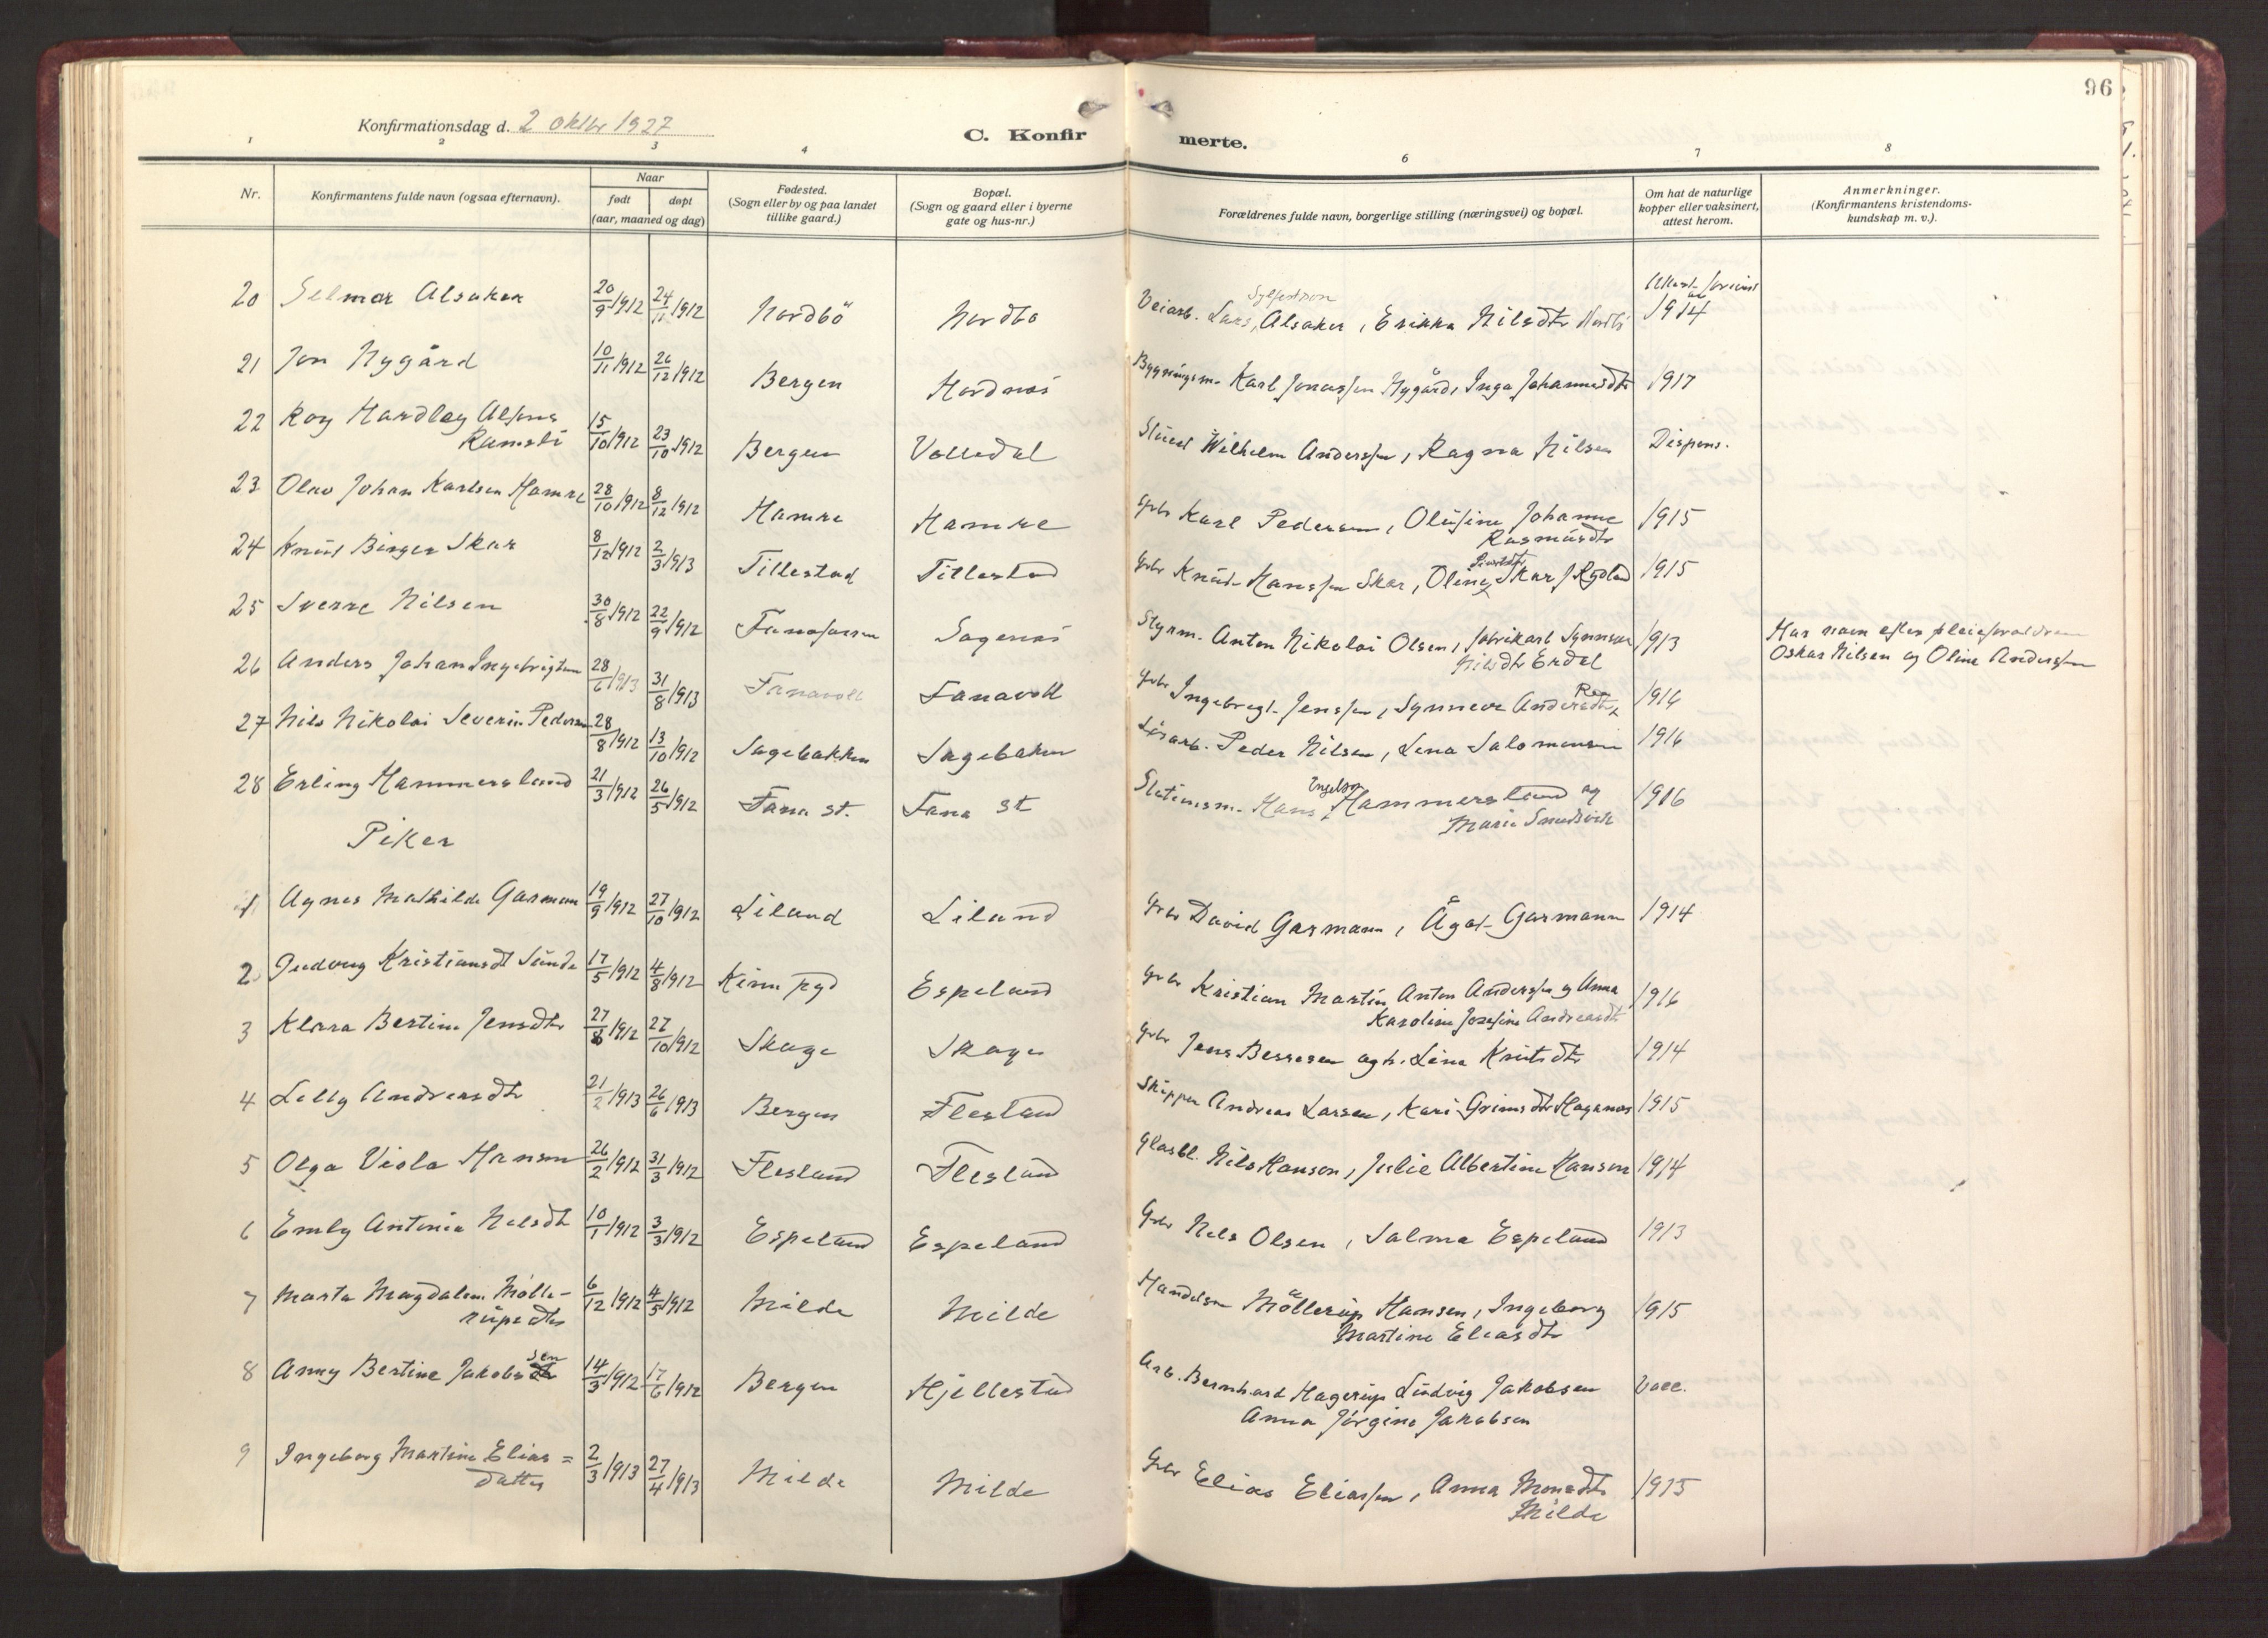 96
Konfirmationsdag d. 2 oktbr 1927
C. Konfirmerte.
1 2 3 4 6 7 8
Nr.
Konfirmantens fulde navn (ogsaa efternavn).
Naar
født døpt
(aar, maaned og dag)
Fødested.
(Sogn eller by og paa landet
tillike gaard.)
Bopæl.
(Sogn og gaard eller i byerne
gate og hus-nr.)
Forældrenes fulde navn, borgerlige stilling (næringsvei) og bopæl.
Om hat de naturlige
kopper eller vaksinert,
attest herom.
Anmerkninger.
(Konfirmantens kristendoms-
kundskap m. v.).
20 Selmer Alsaker 20/9 1912 24/11 1912 Nordbö Nordbö Veiarb. Lars Sylfestson Alsaker, Erikka Nilsdtr Nordbö 1914
21 Jon Nygård 10/11 1912 26/12 1912 Bergen Hordnes Bygningsm. Karl Jonassen Nygård, Inga Johannesdtr 1917
22 Roy Hardley Alfons
Ramsli 15/10 1912 23/10 1912 Bergen Volledal Wilhelm Anderssen, Ragna Nilsen Dispens.
23 Olav Johan Karlsen Hamre 28/10 1912 8/12 1912 Hamre Hamre Gbr Karl Pedersen, Olufine Johanne
Rasmusdtr 1915
24 Knut Birger Skar 8/12 1912 2/3 1913 Tillestad Tillestad Gbr Knut Hanssen Skar, Oline Skar f Rydland 1915
25 Sverre Nilsen 30/8 1912 22/9 1912 Fanafossen Sagenes Styrm. Anton Nikolai Olsen, fabrikarb Synneve
Nilsdtr Erdal 1913 Har navn efter pleieforældrene
Oskar Nilsen og Oline Anderssen
26 Anders Johan Ingebrigtsen 28/6 1913 31/8 1913 Fanavoll Fanavoll Gbr Ingebrigt Jenssen, Synneve Andersdtr 1916
27 Nils Nikolai Severin Pedersen 28/8 1912 13/10 1912 Sagebakken Sagebaken Lösarb. Peder Nilsen, Lena Salomonsen 1916
28 Erling Hammersland 21/3 1912 26/5 1912 Fana st. Fana st Stationsm. Hans Engelsen Hammersland og
Marie Sandsvik 1916
Piker
1 Agnes Mathilde Garmann 19/9 1912 27/10 1912 Liland Liland Gbr David Garmann, Ågot Garmann 1914
2 Gudveig Kristiansdt Sunde 17/5 1912 4/8 1912 Kinn pgd Espeland Gbr Kristian Martin Anton Anderssen og Anna
Karoline Josefine Andreasdt 1916
3 Klara Bertine Jensdtr 27/8 1912 27/10 1912 Skage Skage Gbr Jens Bessesen og h. Lina Knutsdtr 1914
4 Lelly Andreasdtr 21/2 1913 26/6 1913 Bergen Flesland Skipper Andreas Larsen, Kari Grimsdtr Haganes 1915
5 Olga Viola Hansen 26/2 1912 31/3 1912 Flesland Flesland Glasbl. Nils Hanson, Julie Albertine Hanson 1914
6 Emly Antonia Nelsdtr 10/1 1912 3/3 1912 Espeland Espeland Gbr Nels Olsen, Salma Espeland 1913
7 Marta Magdalena Mölle-
rupsdtr 6/12 1912 4/5 1912 Milde Milde Handelsm Möllerup Hansen, Ingeborg
Martine Eliasdtr 1915
8 Anny Bertine Jakobsen 14/3 1912 17/6 1912 Bergen Hjellestad Arb. Bernhard Hagerup Ludvig Jakobsen
Anna Jörgine Jakobsen Vacc.
9 Ingeborg Martine Elias=
datter 2/3 1913 27/4 1913 Milde Milde Gbr Elias Eliassen, Anna Monsdtr
Milde 1915